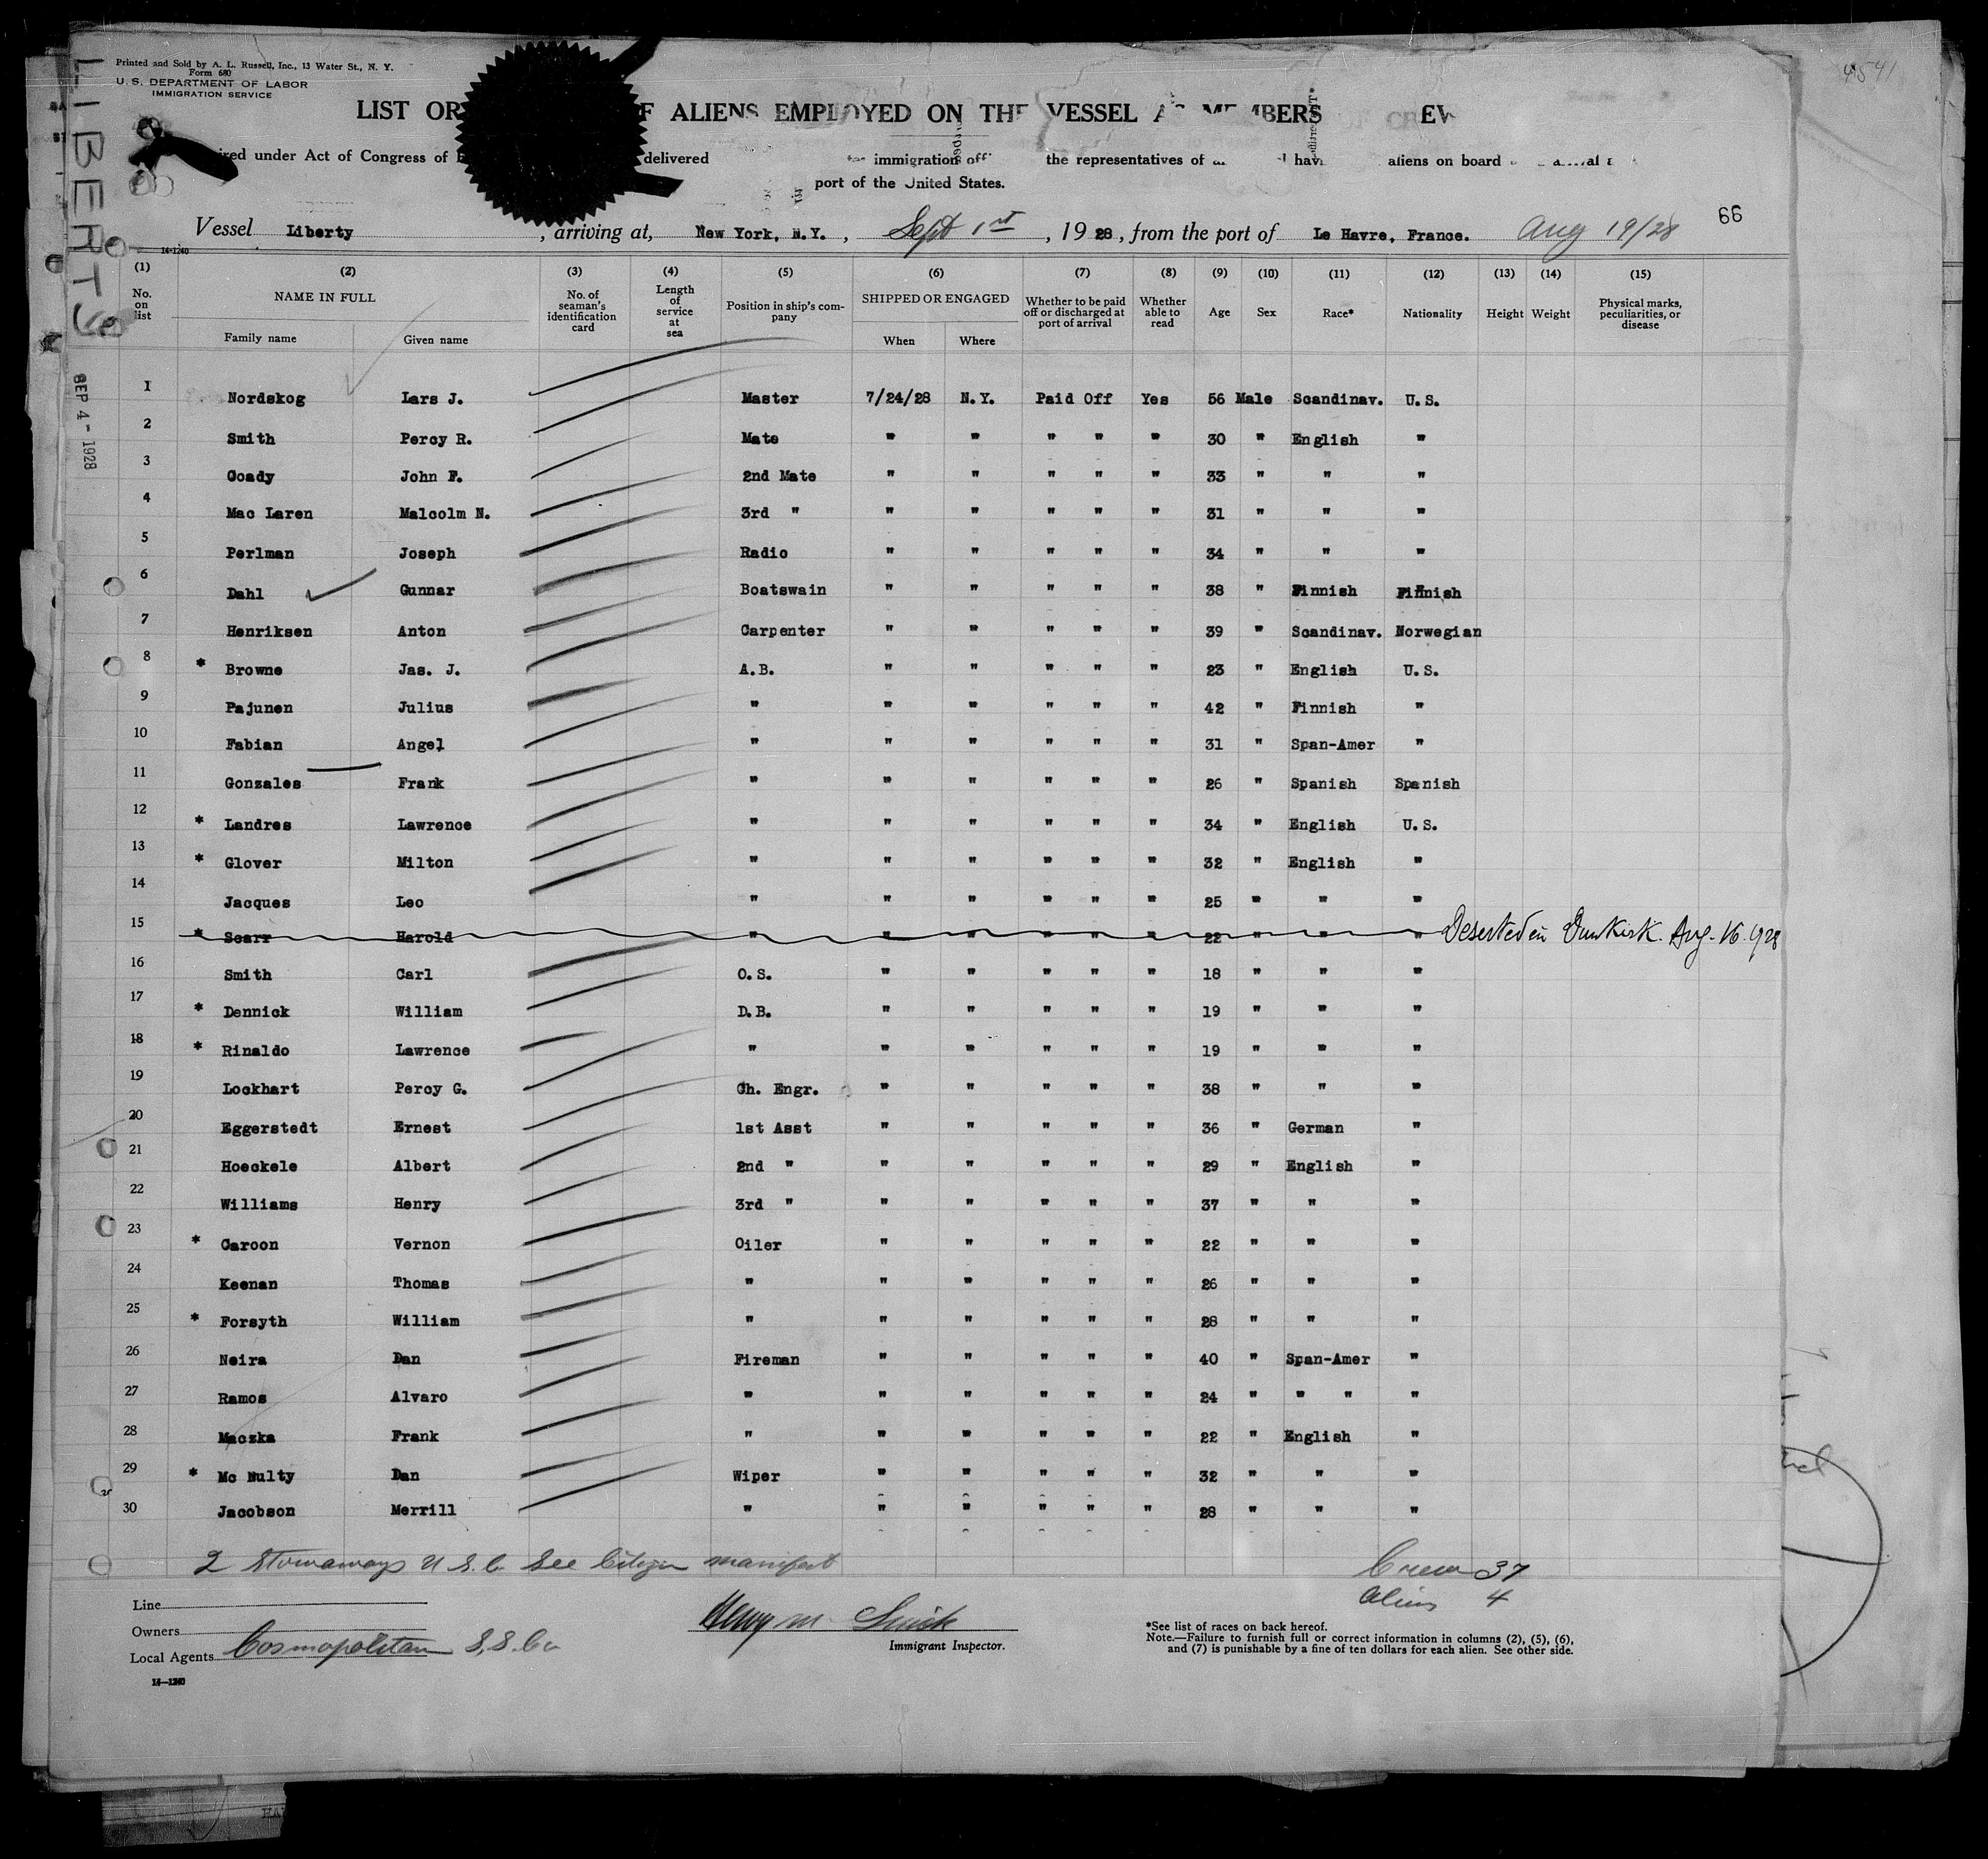 Printed and Sold by A. L. Russell, Inc., 13 Water St., N. Y.
Form 680
U. S. DEPARTMENT OF LABOR
IMMIGRATION SERVICE
LIBERTY
SEP 4 - 1928
4541
LIST OR ALIENS EMPLOYED ON THE VESSEL AS MEMBERS
under Act of Congress of delivered immigration the representatives of aliens on board
port of the United States.
66
Vessel Liberty, arriving at, New York, N.Y., Sept 1st, 1928, from the port of Le Havre, France. Aug 19/28
14-1240
(1) (2) (3) (4) (5) (6) (7) (8) (9) (10) (11) (12) (13) (14) (15)
No. on list NAME IN FULL No. of seaman's identification card Length of service at sea Position in ship's company SHIPPED OR ENGAGED Whether to be paid off or discharged at port of arrival Whether able to read Age Sex Race* Nationality Height Weight Physical marks, peculiarities, or disease
Family name Given name When Where
1 Nordskog Lars J. Master 7/24/28 N.Y. Paid Off Yes 56 Male Scandinav. U.S.
2 Smith Percy R. Mate " " " " " 30 " English "
3 Coady John F. 2nd Mate " " " " " 33 " " "
4 Mac Laren Malcolm N. 3rd " " " " " " 31 " " "
5 Perlman Joseph Radio " " " " " 34 " " "
6 Dahl Gunnar Boatswain " " " " " 38 " Finnish Finnish
7 Henriksen Anton Carpenter " " " " " 39 " Scandinav. Norwegian
8 * Browne Jas. J. A.B. " " " " " 23 " English U.S.
9 Pajunen Julius " " " " " " 42 " Finnish "
10 Fabian Angel " " " " " " 31 " Span-Amer "
11 Gonzales Frank " " " " " " 26 " Spanish Spanish
12 * Landres Lawrence " " " " " " 34 " English U.S.
13 * Glover Milton " " " " " " 32 " English "
14 Jacques Leo " " " " " " 25 " " "
15 * Scarr Harold " " " " " " 22 " " " Deserted in Dunkirk. Aug. 16. 1928
16 Smith Carl O.S. " " " " " 18 " " "
17 * Dennick William D.B. " " " " " 19 " " "
18 * Rinaldo Lawrence " " " " " " 19 " " "
19 Lockhart Percy G. Ch. Engr. " " " " " 38 " " "
20 Eggerstedt Ernest 1st Asst " " " " " 36 " German "
21 Hoeckele Albert 2nd " " " " " " 29 " English "
22 Williams Henry 3rd " " " " " " 37 " " "
23 * Caroon Vernon Oiler " " " " " 22 " " "
24 Keenan Thomas " " " " " " 26 " " "
25 * Forsyth William " " " " " " 28 " " "
26 Neira Dan Fireman " " " " " 40 " Span-Amer "
27 Ramos Alvaro " " " " " " 24 " " " "
28 Maczka Frank " " " " " " 22 " English "
29 * Mc Nulty Dan Wiper " " " " " 32 " " "
30 Jacobson Merrill " " " " " " 28 " " "
2 Stowaways U.S.C. See Citizen manifest
Crew 37
Aliens 4
Line
Owners
Local Agents Cosmopolitan S.S. Co
Henry M.
Immigrant Inspector.
*See list of races on back hereof.
Note.—Failure to furnish full or correct information in columns (2), (5), (6),
and (7) is punishable by a fine of ten dollars for each alien. See other side.
14-1240